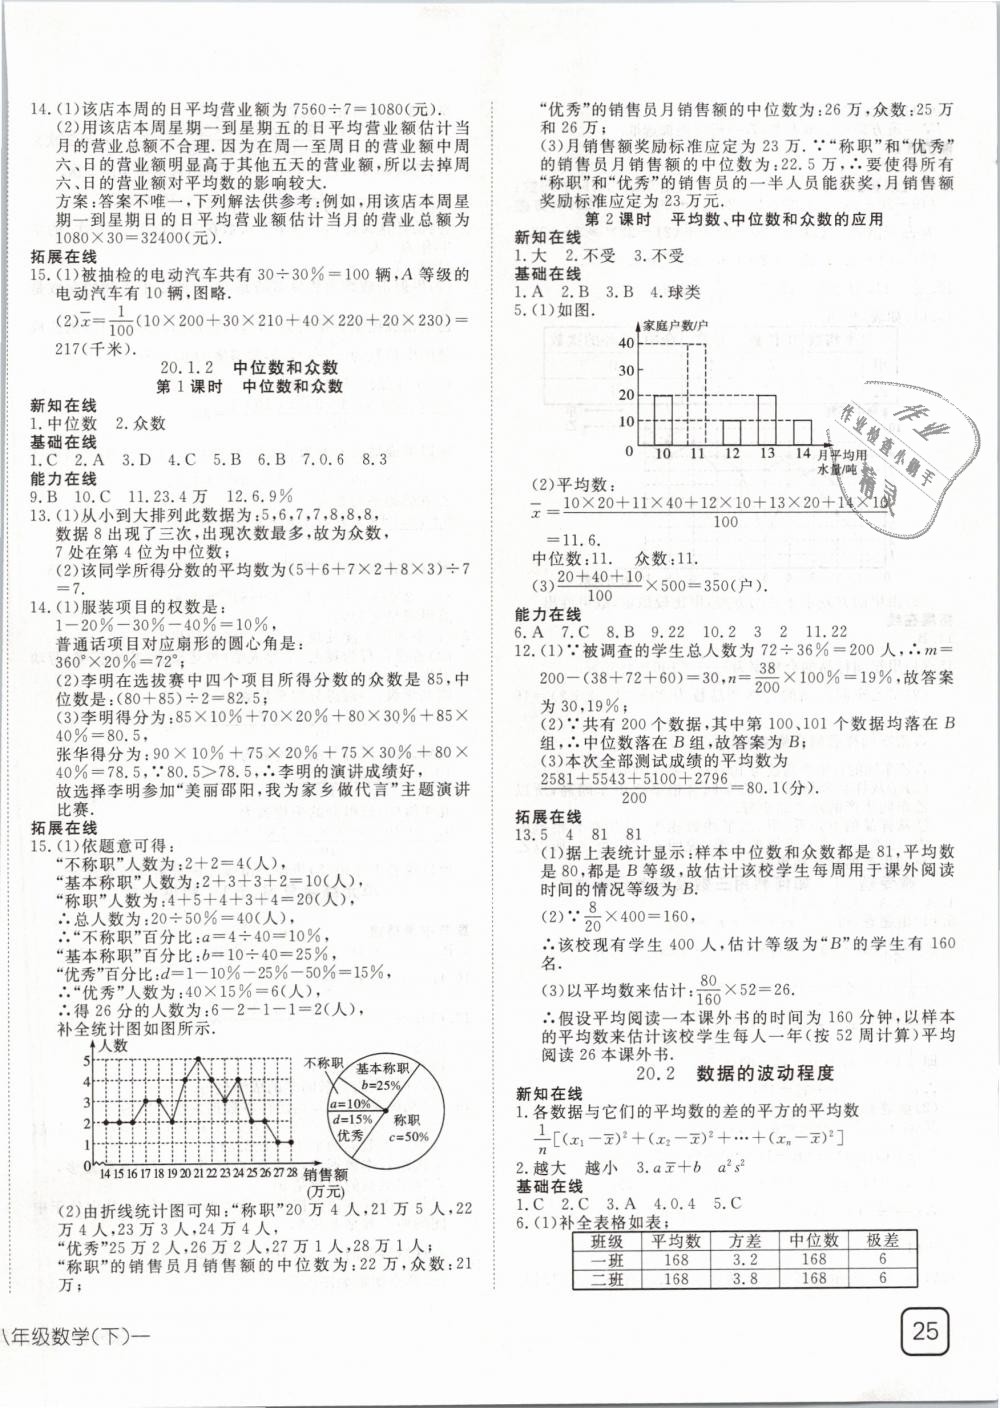 14.(1)该店本周的日平均营业额为7560÷7=1080(元).
(2)用该店本周星期一到星期五的日平均营业额估计当
月的营业总额不合理.因为在周一至周日的营业额中周
六、日的营业额明显高于其他五天的营业额,所以去掉周
六、日的营业额对平均数的影响较大.
方案:答案不唯一,下列解法供参考:例如,用该店本周星
期一到星期日的日平均营业额估计当月的营业总额为
1080×30=32400(元).
拓展在线
15.(1)被抽检的电动汽车共有30÷30%=100辆,A等级的
电动汽车有10辆,图略.
(2)x̄=1/100(10×200+30×210+40×220+20×230)=
217(千米).
20.1.2 中位数和众数
第1课时 中位数和众数
新知在线
1.中位数 2.众数
基础在线
1.C 2.A 3.D 4.C 5.B 6.B 7.0.6 8.3
能力在线
9.B 10.C 11.23.4万 12.6.9%
13.(1)从小到大排列此数据为:5,6,7,7,8,8,8,
数据8出现了三次,出现次数最多,故为众数,
7处在第4位为中位数;
(2)该同学所得分数的平均数为(5+6+7×2+8×3)÷7
=7.
14.(1)服装项目的权数是:
1-20%-30%-40%=10%,
普通话项目对应扇形的圆心角是:
360°×20%=72°;
(2)李明在选拔赛中四个项目所得分数的众数是85,中
位数是:(80+85)÷2=82.5;
(3)李明得分为:85×10%+70×20%+80×30%+85×
40%=80.5,
张华得分为:90×10%+75×20%+75×30%+80×
40%=78.5,∵80.5>78.5,∴李明的演讲成绩好,
故选择李明参加“美丽邵阳,我为家乡做代言”主题演讲
比赛.
拓展在线
15.(1)依题意可得:
“不称职”人数为:2+2=4(人),
“基本称职”人数为:2+3+3+2=10(人),
“称职”人数为:4+5+4+3+4=20(人),
∴总人数为:20÷50%=40(人),
∴“不称职”百分比:a=4÷40=10%,
“基本称职”百分比:b=10÷40=25%,
“优秀”百分比:d=1-10%-25%-50%=15%,
∴“优秀”人数为:40×15%=6(人),
∴得26分的人数为:6-2-1-1=2(人),
补全统计图如图所示.
人数
5
4
3
2
1
0
14 15 16 17 18 19 20 21 22 23 24 25 26 27 28 销售额
(万元)
不称职
基本称职
b=25%
a=10%
d=15%
优秀
称职
c=50%
(2)由折线统计图可知:“称职”20万4人,21万5人,22
万4人,23万3人,24万4人,
“优秀”25万2人,26万2人,27万1人,28万1人;
“称职”的销售员月销售额的中位数为:22万,众数:21
万;
八年级数学(下)一
“优秀”的销售员月销售额的中位数为:26万,众数:25万
和26万;
(3)月销售额奖励标准应定为23万.∵“称职”和“优秀”
的销售员月销售额的中位数为:22.5万,∴要使得所有
“称职”和“优秀”的销售员的一半人员能获奖,月销售额
奖励标准应定为23万元.
第2课时 平均数、中位数和众数的应用
新知在线
1.大 2.不受 3.不受
基础在线
1.A 2.B 3.B 4.球类
5.(1)如图.
家庭户数/户
40
30
20
10
0 10 11 12 13 14 月平均用
水量/吨
(2)平均数:
x̄=(10×20+11×40+12×10+13×20+14×10)/100
=11.6.
中位数:11. 众数:11.
(3)(20+40+10)/100×500=350(户).
能力在线
6.A 7.C 8.B 9.22 10.2 3 2 11.22
12.(1)∵被调查的学生总人数为72÷36%=200人,∴m=
200-(38+72+60)=30,n=38/200×100%=19%,故答案
为30,19%;
(2)∵共有200个数据,其中第100、101个数据均落在B
组,∴中位数落在B组,故答案为B;
(3)本次全部测试成绩的平均数为
(2581+5543+5100+2796)/200=80.1(分).
拓展在线
13.5 4 81 81
(1)据上表统计显示:样本中位数和众数都是81,平均数
是80,都是B等级,故估计该校学生每周用于课外阅读
时间的情况等级为B.
(2)∵8/20×400=160,
∴该校现有学生400人,估计等级为“B”的学生有160
名.
(3)以平均数来估计:80/160×52=26.
∴假设平均阅读一本课外书的时间为160分钟,以样本
的平均数来估计该校学生每人一年(按52周计算)平均
阅读26本课外书.
20.2 数据的波动程度
新知在线
1.各数据与它们的平均数的差的平方的平均数
1/n[(x₁-x̄)²+(x₂-x̄)²+…+(xₙ-x̄)²]
2.越大 越小 3.ax̄+b a²s²
基础在线
1.C 2.C 3.A 4.0.4 5.C
6.(1)补全表格如表:
班级 平均数 方差 中位数 极差
一班 168 3.2 168 6
二班 168 3.8 168 6
25
作业
作业检查小助手
精灵